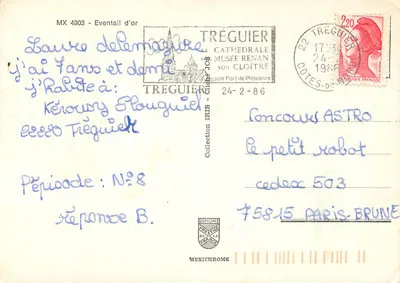 MX 4903 - Eventail d'or
Laure delemazure
j'ai 7 ans et demi
j'habite à :
Kérousy Plouguiel
22220 Tréguier
Pépisode : N°8
réponse B.
TRÉGUIER
CATHÉDRALE
MUSÉE RENAN
SON CLOÎTRE
son Port de Plaisance
TREGUIER
24-2-86
22 TREGUIER
24-2
1986
COTES-DU-NORD
2,20
Collection IRIS
Concours ASTRO
le petit robot
cedex 503
75815 PARIS-BRUNE
MEXICHROME